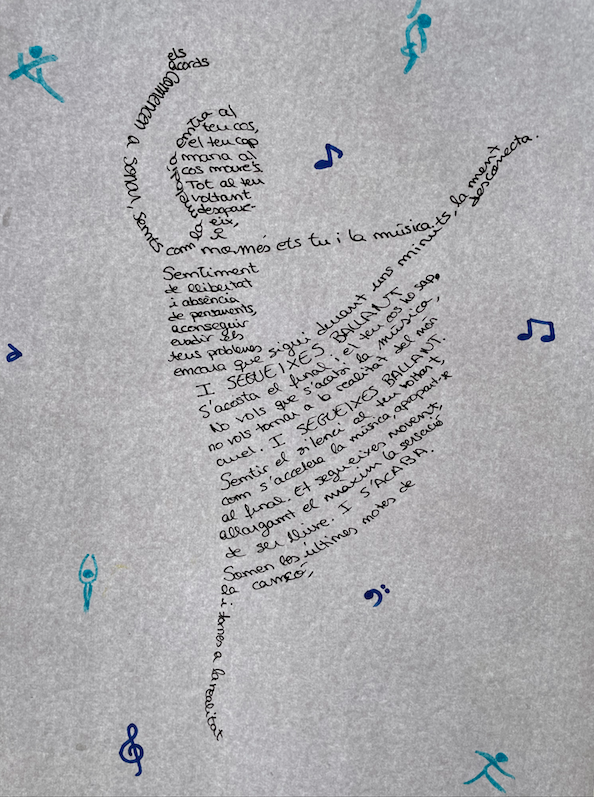 els
acords
comencen a sonar, sents
com la melodia
entra al
teu cos,
el teu cap
mana al
cos moure's.
Tot al teu
voltant
desapar-
eix,
i
només ets tu i la música.
Sentiment
de llibertat
i absència
de pensaments,
aconseguir
evadir els
teus problemes
encara que sigui durant uns minuts, la ment
desconecta.
I SEGUEIXES BALLANT
S'acosta el final i el teu cos ho sap.
No vols que s'acabi la música,
no vols tornar a la realitat del món
cruel. I SEGUEIXES BALLANT.
Sentir el silenci al teu voltant,
com s'accelera la música, apropant-se
al final. Et segueixes movent,
allargant el màxim la sensació
de ser lliure. I S'ACABA.
Sonen les últimes notes de
la cançó,
i tornes a la realitat